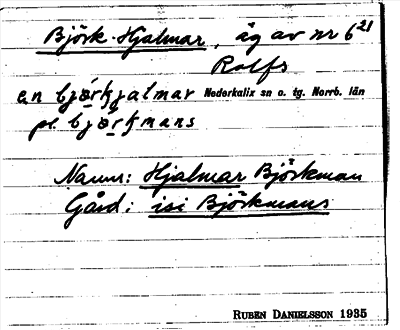 Björk-Hjalmar, äg av nr 6²¹
Rolfs
en Nederkalix sn o. tg. Norrb. län
pl.
Namn: Hjalmar Björkman
Gård: isi Björkmans
RUBEN DANIELSSON 1935